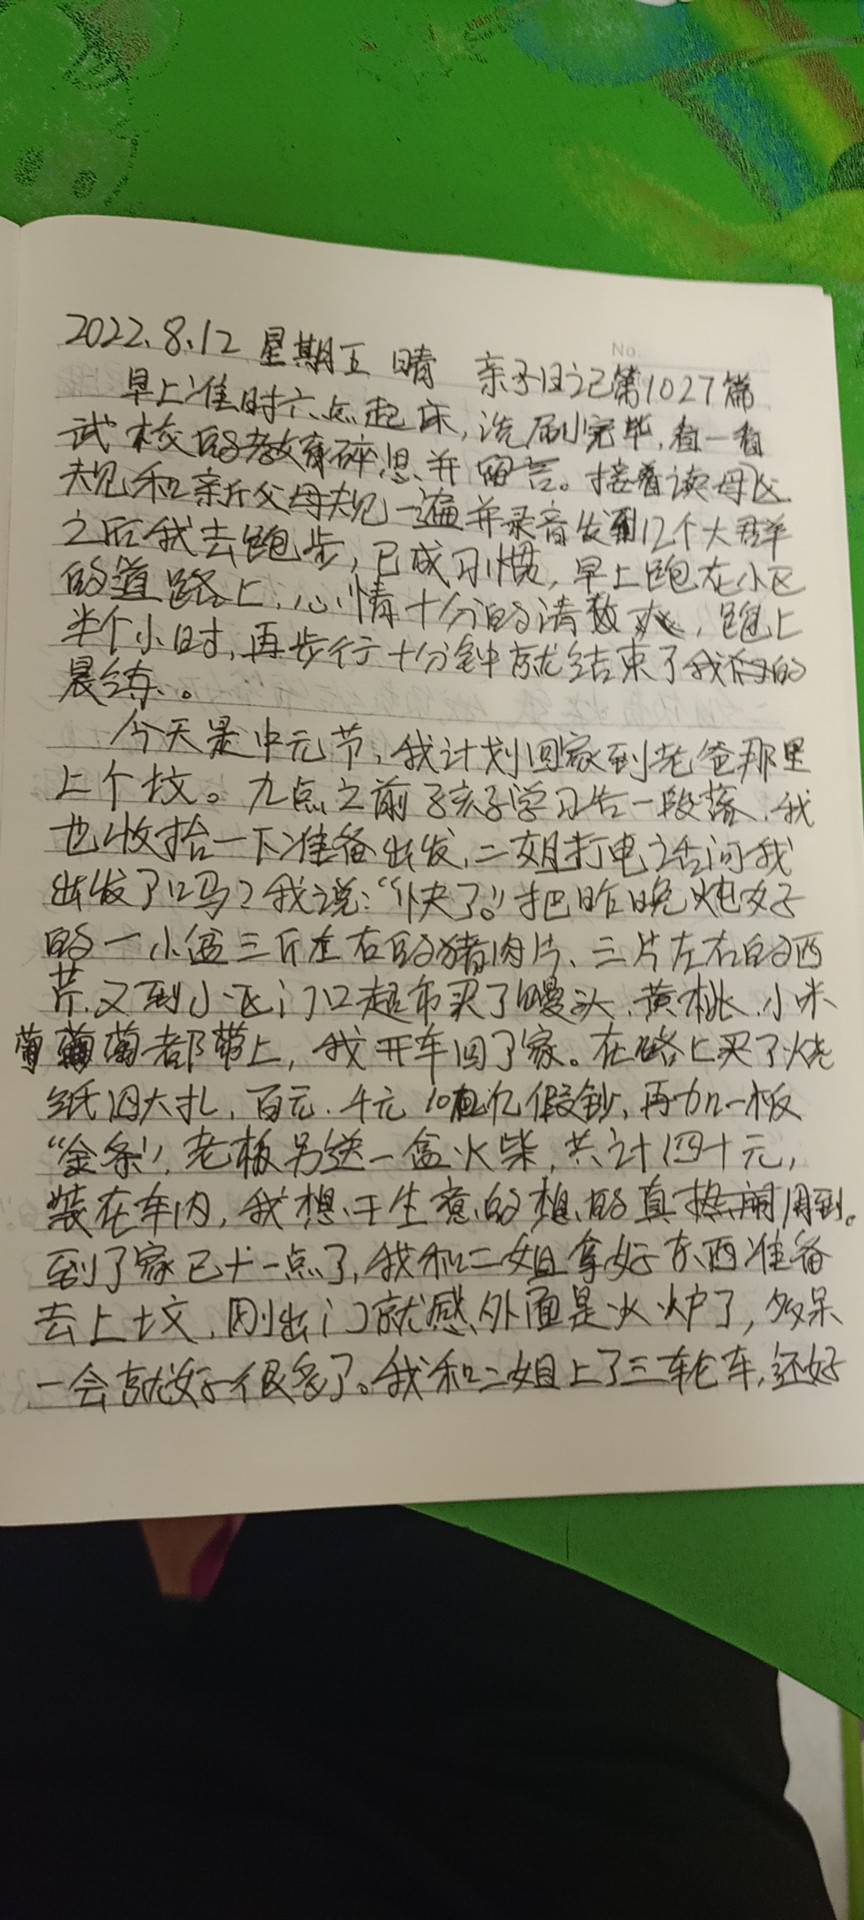 No.
2022.8.12 星期五 晴 亲子日记第1027篇
早上准时六点起床,洗刷完毕,看一看
武校的教育碎思并留言。接着读母父
规和新父母规一遍并录音发到12个大群
之后我去跑步,已成习惯,早上跑在小区
的道路上,心情十分的清爽,跑上
半个小时,再步行十分钟就结束了我的
晨练。
今天是中元节,我计划回家到老爸那里
上个坟。九点之前孩子学习告一段落,我
也收拾一下准备出发,二姐打电话问我
出发了吗?我说:“快了。”把昨晚炖好
的一小盆三斤左右的猪肉片、三片左右的西
芹,又到小区门口超市买了馒头、黄桃、小米
葡萄都带上,我开车回了家。在路上买了烧
纸四大扎,百元、千元 亿假钞,再加一板
“金条”,老板另送一盒火柴,共计四十元,
装在车内,我想干生意的想的真周到。
到了家已十一点了,我和二姐拿好东西准备
去上坟,刚出门就感外面是火炉了,多呆
一会就好很多了。我和二姐上了三轮车,还好